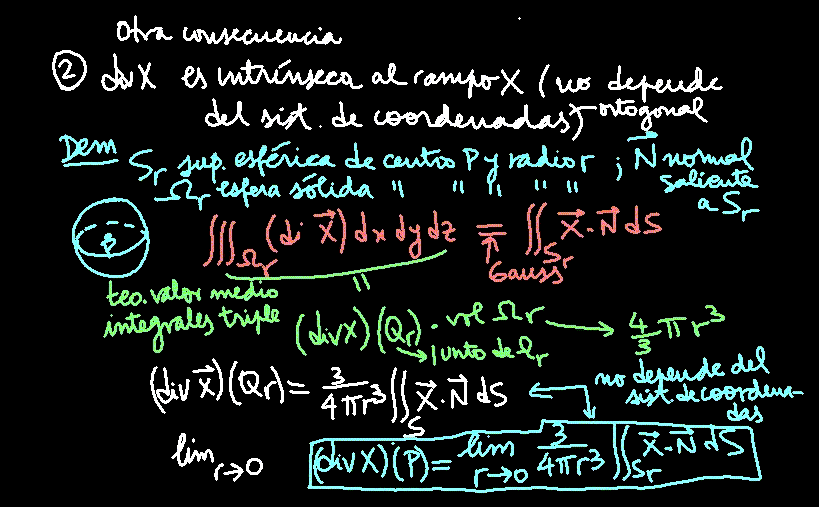 Otra consecuencia
② div X es intrínseca al campo X (no depende
del sist. de coordenadas) ortogonal
Dem S_r sup. esférica de centro P y radio r ; N⃗ normal
saliente
a S_r
Ω_r esfera sólida " " " " "
P
∭_Ω_r (di X⃗) dx dy dz = ∬_S_r X⃗·N⃗ dS
Gauss
teo. valor medio
integrales triple
"
(div X)(Q_r) · vol Ω_r → 4/3 π r³
→ 1 unto de Ω_r
(div X⃗)(Q_r) = 3/4πr³ ∬_S X⃗·N⃗ dS
no depende del
sist. de coordena-
das
lim r→0
(div X)(P) = lim r→0 3/4πr³ ∬_S_r X⃗·N⃗ dS